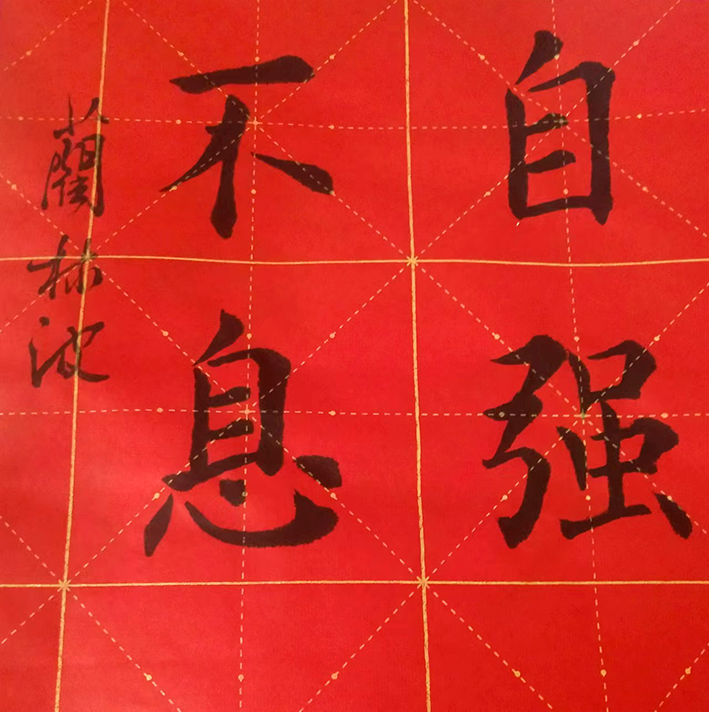 自强
不息
蘭林波